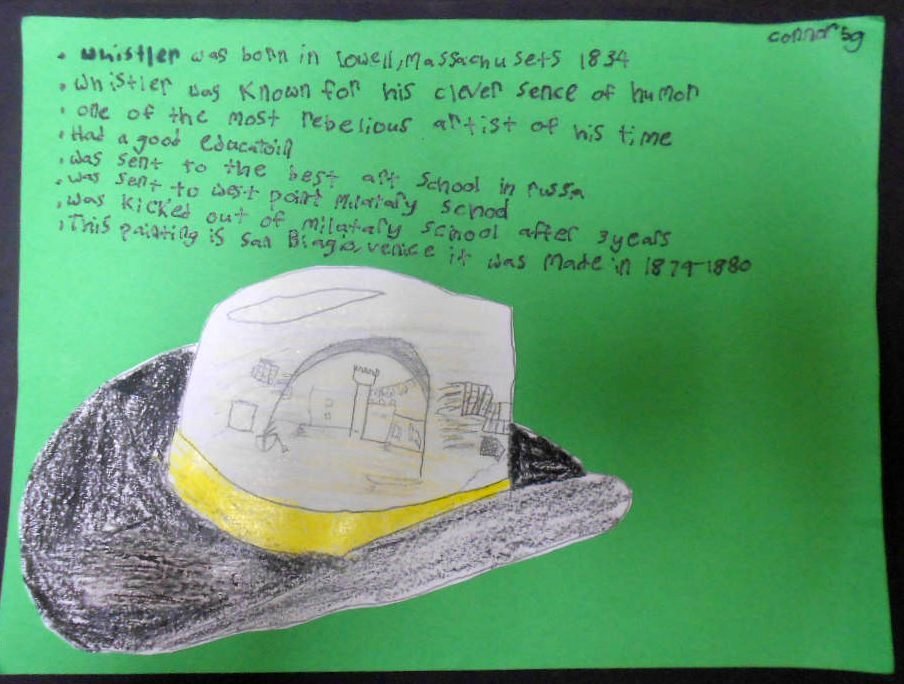 connor 5g
• Whistler was born in Lowell, Massachusets 1834
• Whistler was known for his clever sence of humor
• one of the most rebelious artist of his time
• Had a good educatoin
• was sent to the best art school in russa
• was sent to west point Milatary school
• was kicked out of milatary school after 3 years
• This painting is San Biago, venice it was made in 1879-1880